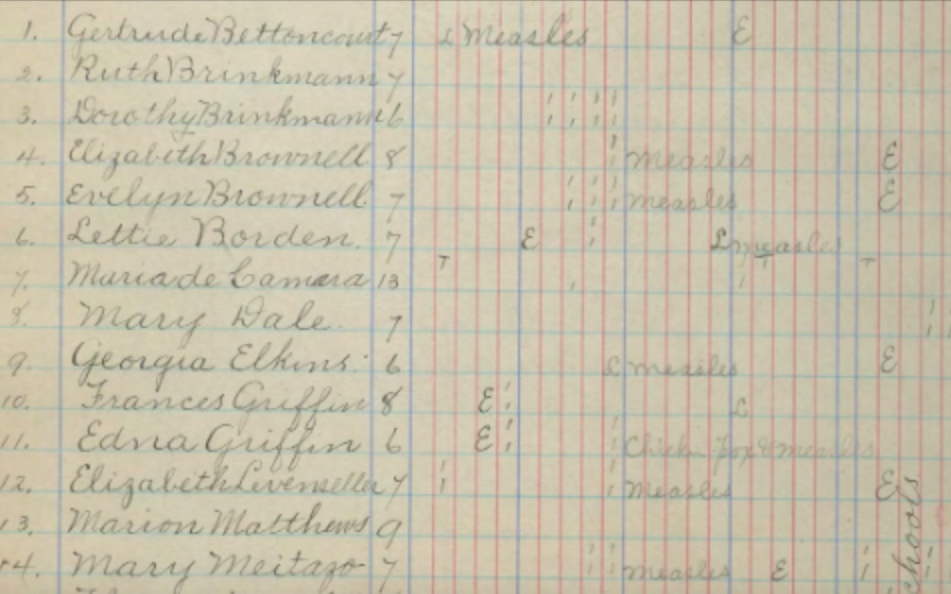 1. Gertrude Bettoncourt 7 L Measles E
2. Ruth Brinkmann 7
3. Dorothy Brinkmann 6
4. Elizabeth Brownell 8 Measles E
5. Evelyn Brownell 7 Measles E
6. Lettie Borden. 7 E L measles
T T T
7. Maria de Camara 13
8. Mary Dale. 7
9. Georgia Elkins. 6 L measles E
10. Frances Griffin 8 E L
11. Edna Griffin 6 E Chicken pox & measles
12. Elizabeth Levenseller 7 Measles E
13. Marion Matthews 9
14. Mary Meitazo 7 Measles E